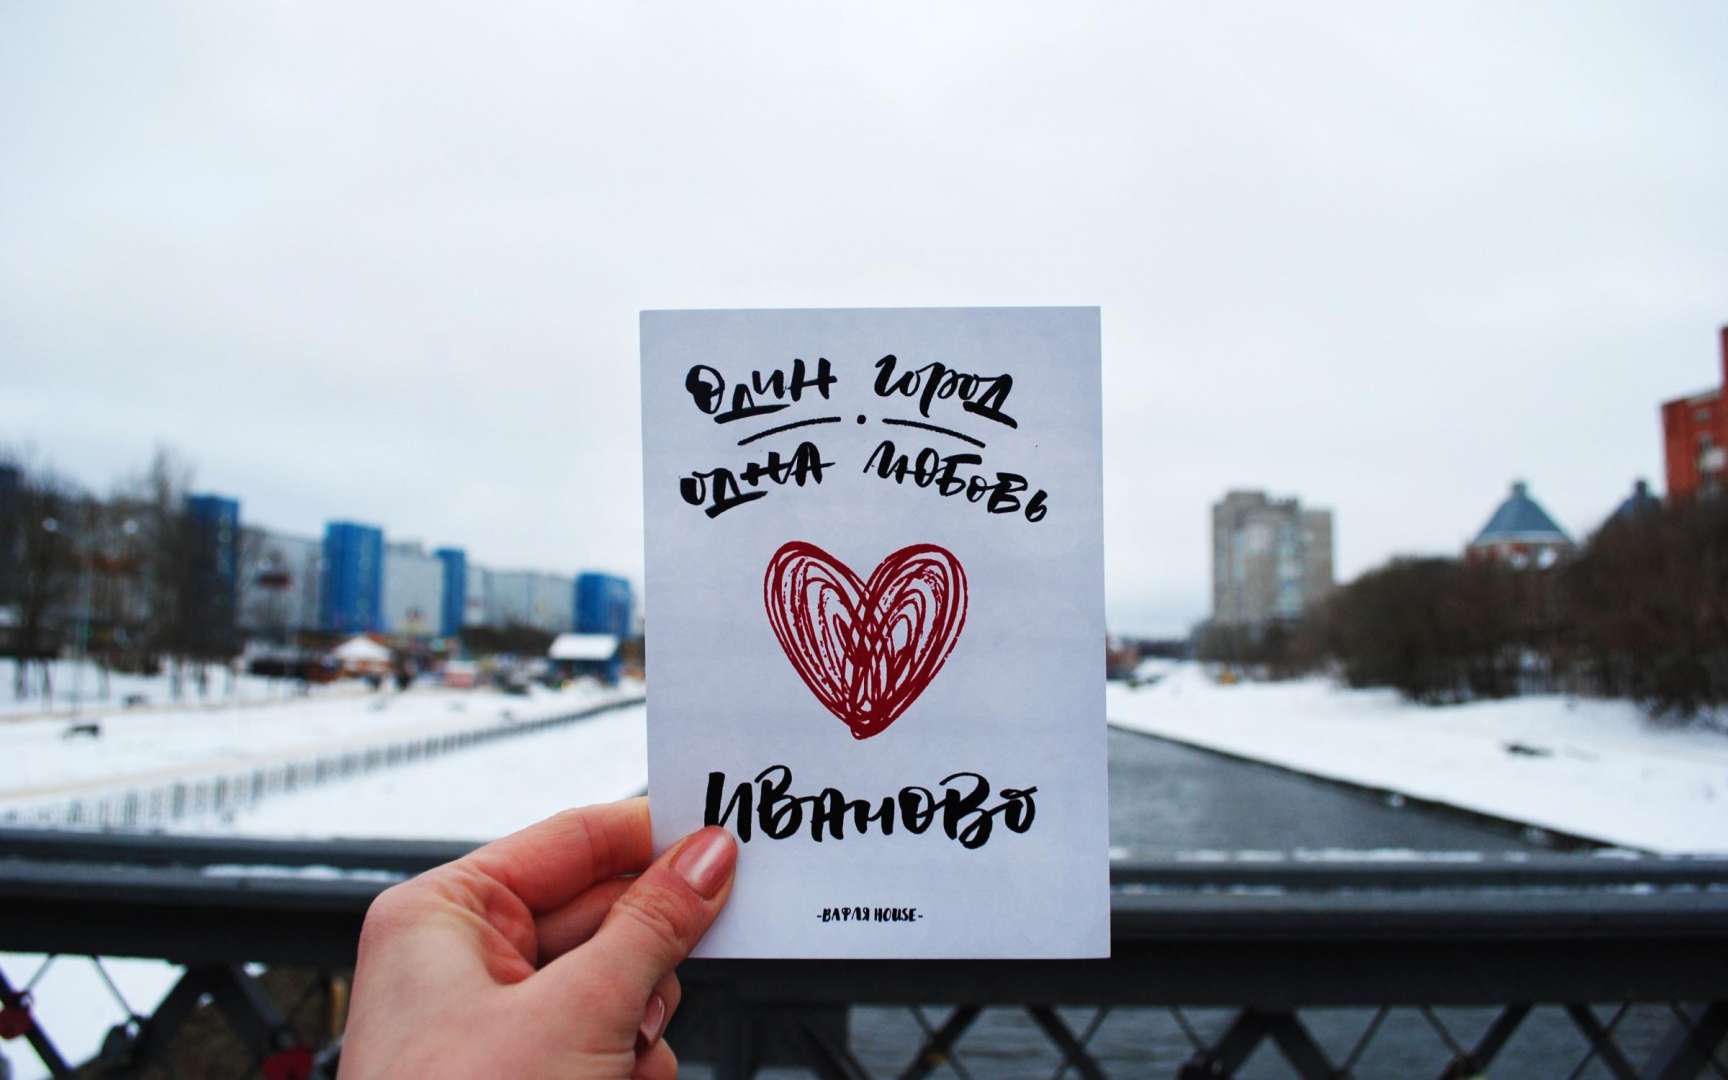 Один город
одна любовь
Иваново
-ВАФЛЯ HOUSE-